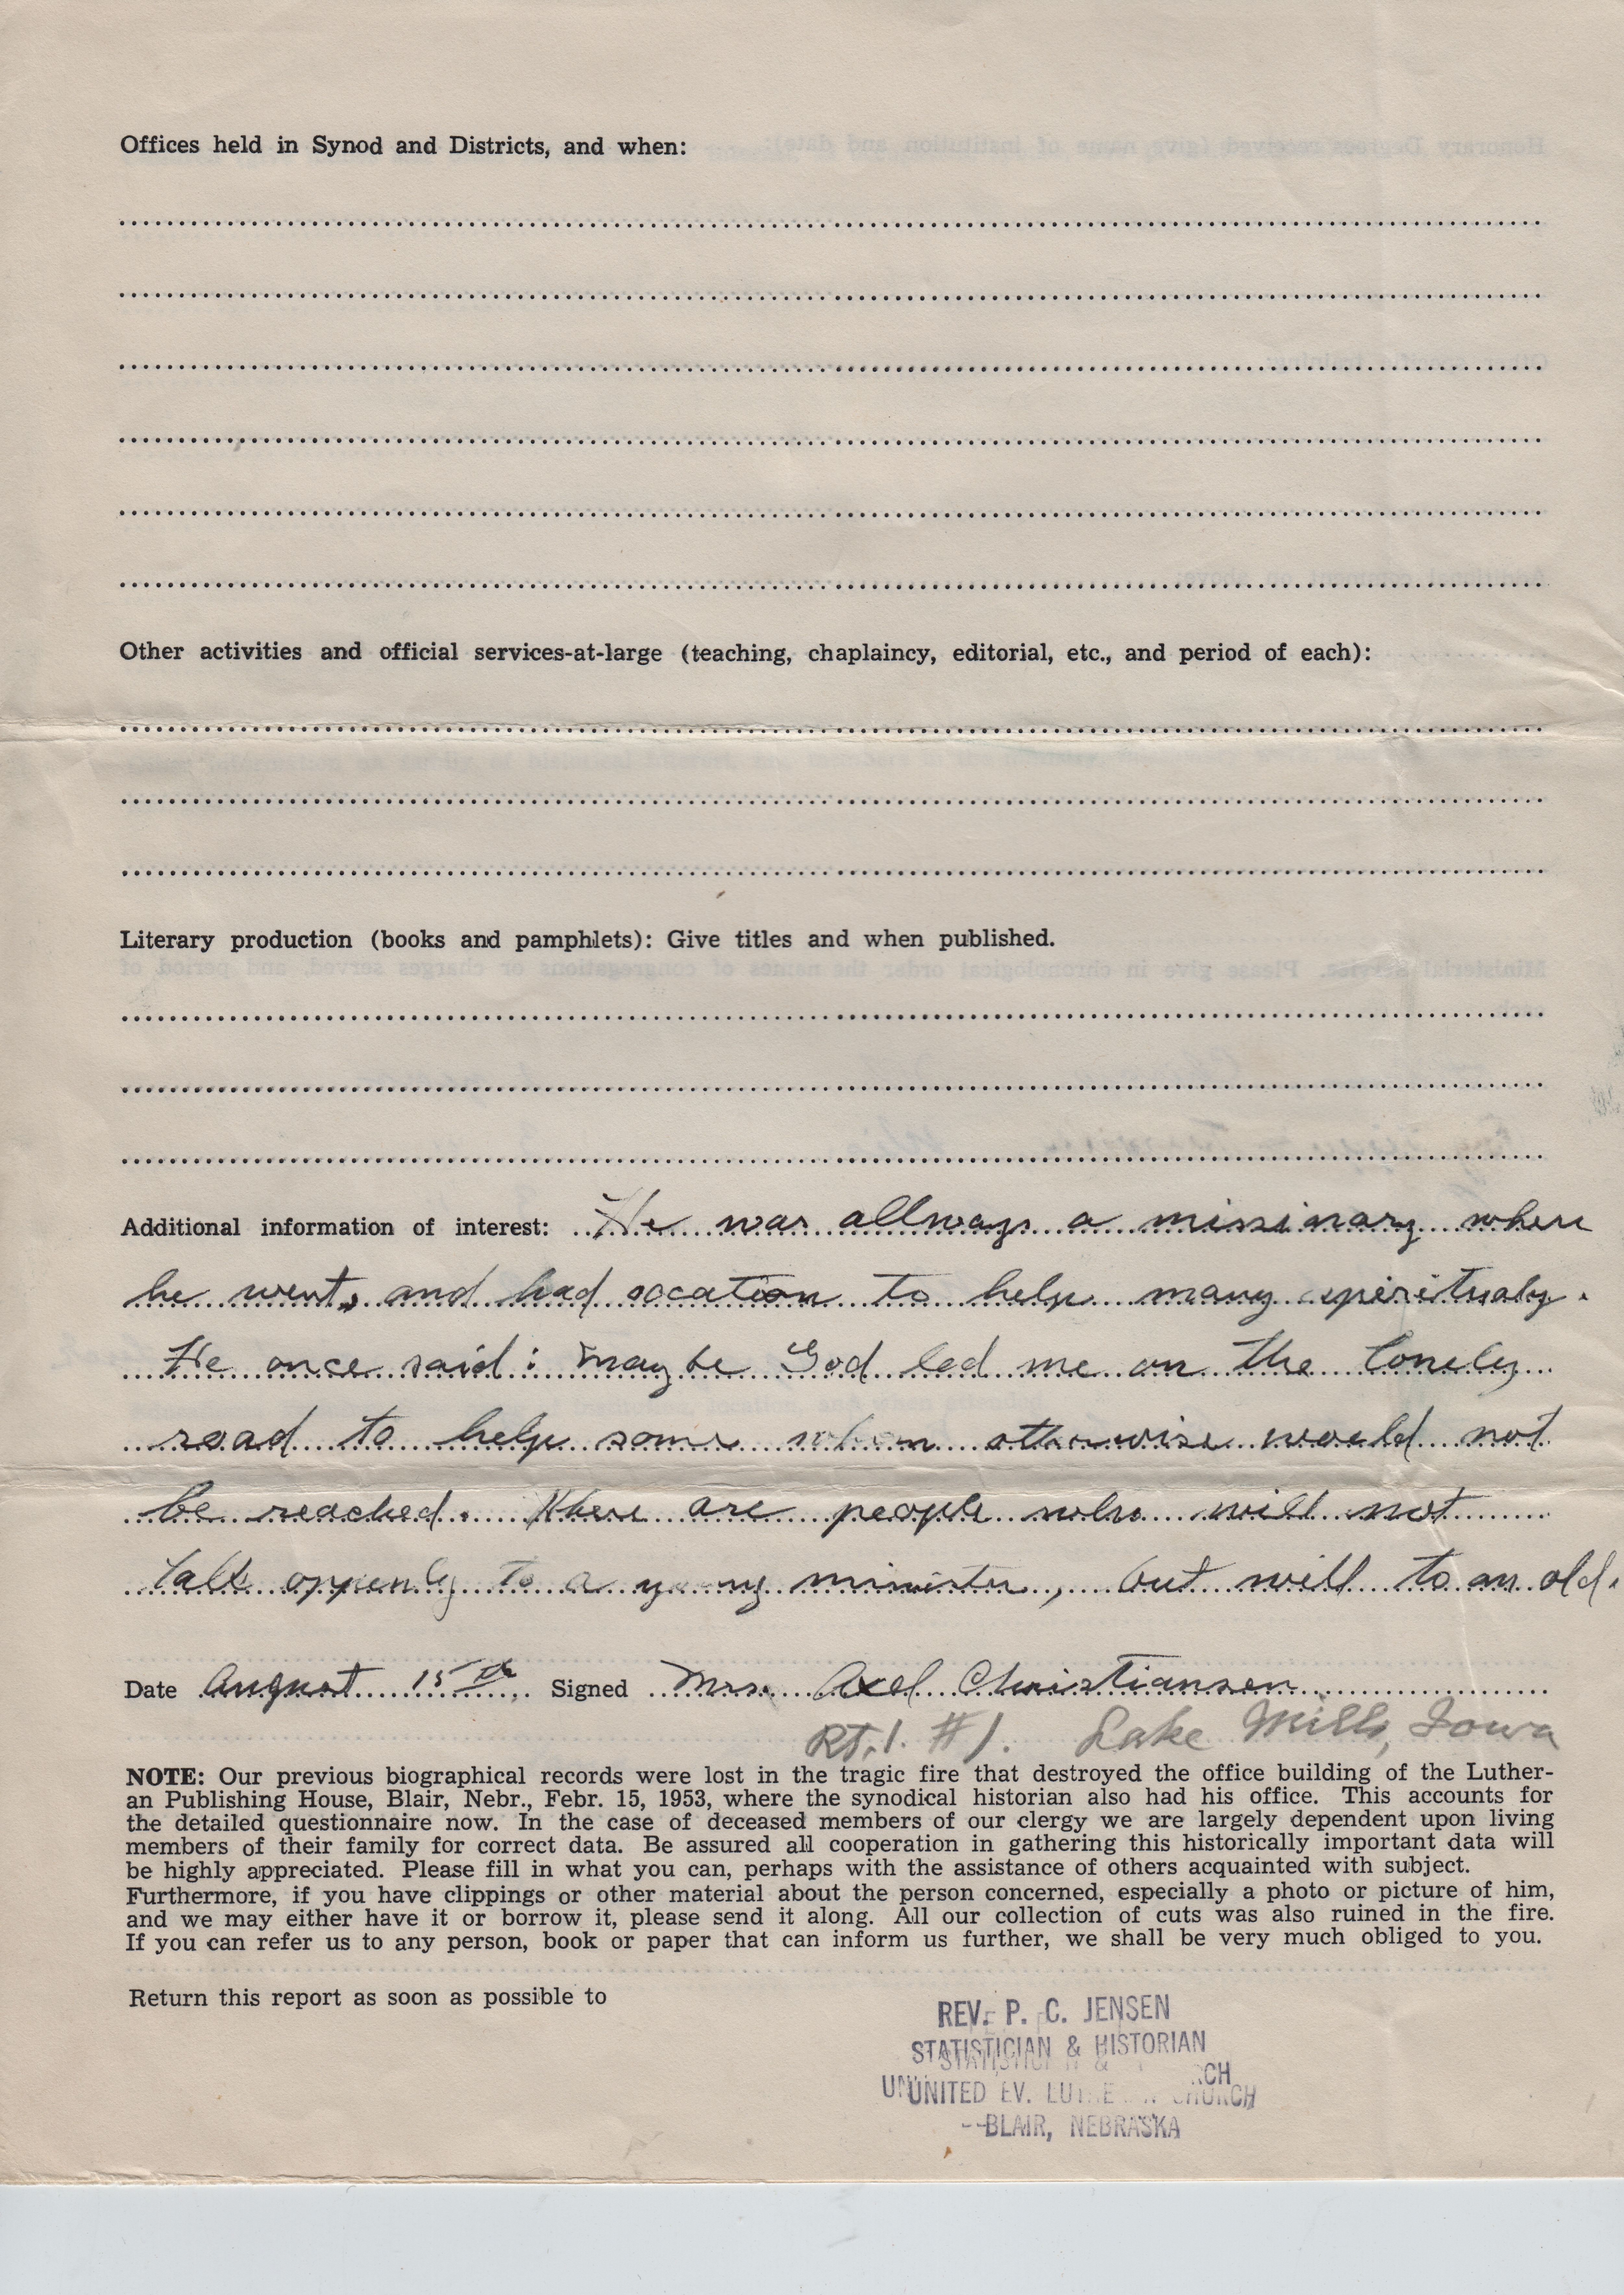 Offices held in Synod and Districts, and when:
Other activities and official services-at-large (teaching, chaplaincy, editorial, etc., and period of each):
Literary production (books and pamphlets): Give titles and when published.
Additional information of interest: He was allways a missinary where
he went, and had occation to help many spiritualy.
He once said: maybe God led me on the lonely
road to help some whom otherwise would not
be reached. There are people who will not
talk oppenly to a young minister, but will to an old.
Date August 15th Signed Mrs. Axel Christiansen
Rt. 1. #1. Lake Mills, Iowa
NOTE: Our previous biographical records were lost in the tragic fire that destroyed the office building of the Luther-
an Publishing House, Blair, Nebr., Febr. 15, 1953, where the synodical historian also had his office. This accounts for
the detailed questionnaire now. In the case of deceased members of our clergy we are largely dependent upon living
members of their family for correct data. Be assured all cooperation in gathering this historically important data will
be highly appreciated. Please fill in what you can, perhaps with the assistance of others acquainted with subject.
Furthermore, if you have clippings or other material about the person concerned, especially a photo or picture of him,
and we may either have it or borrow it, please send it along. All our collection of cuts was also ruined in the fire.
If you can refer us to any person, book or paper that can inform us further, we shall be very much obliged to you.
Return this report as soon as possible to
REV. P. C. JENSEN
STATISTICIAN & HISTORIAN
UNITED EV. LUTHERAN CHURCH
BLAIR, NEBRASKA